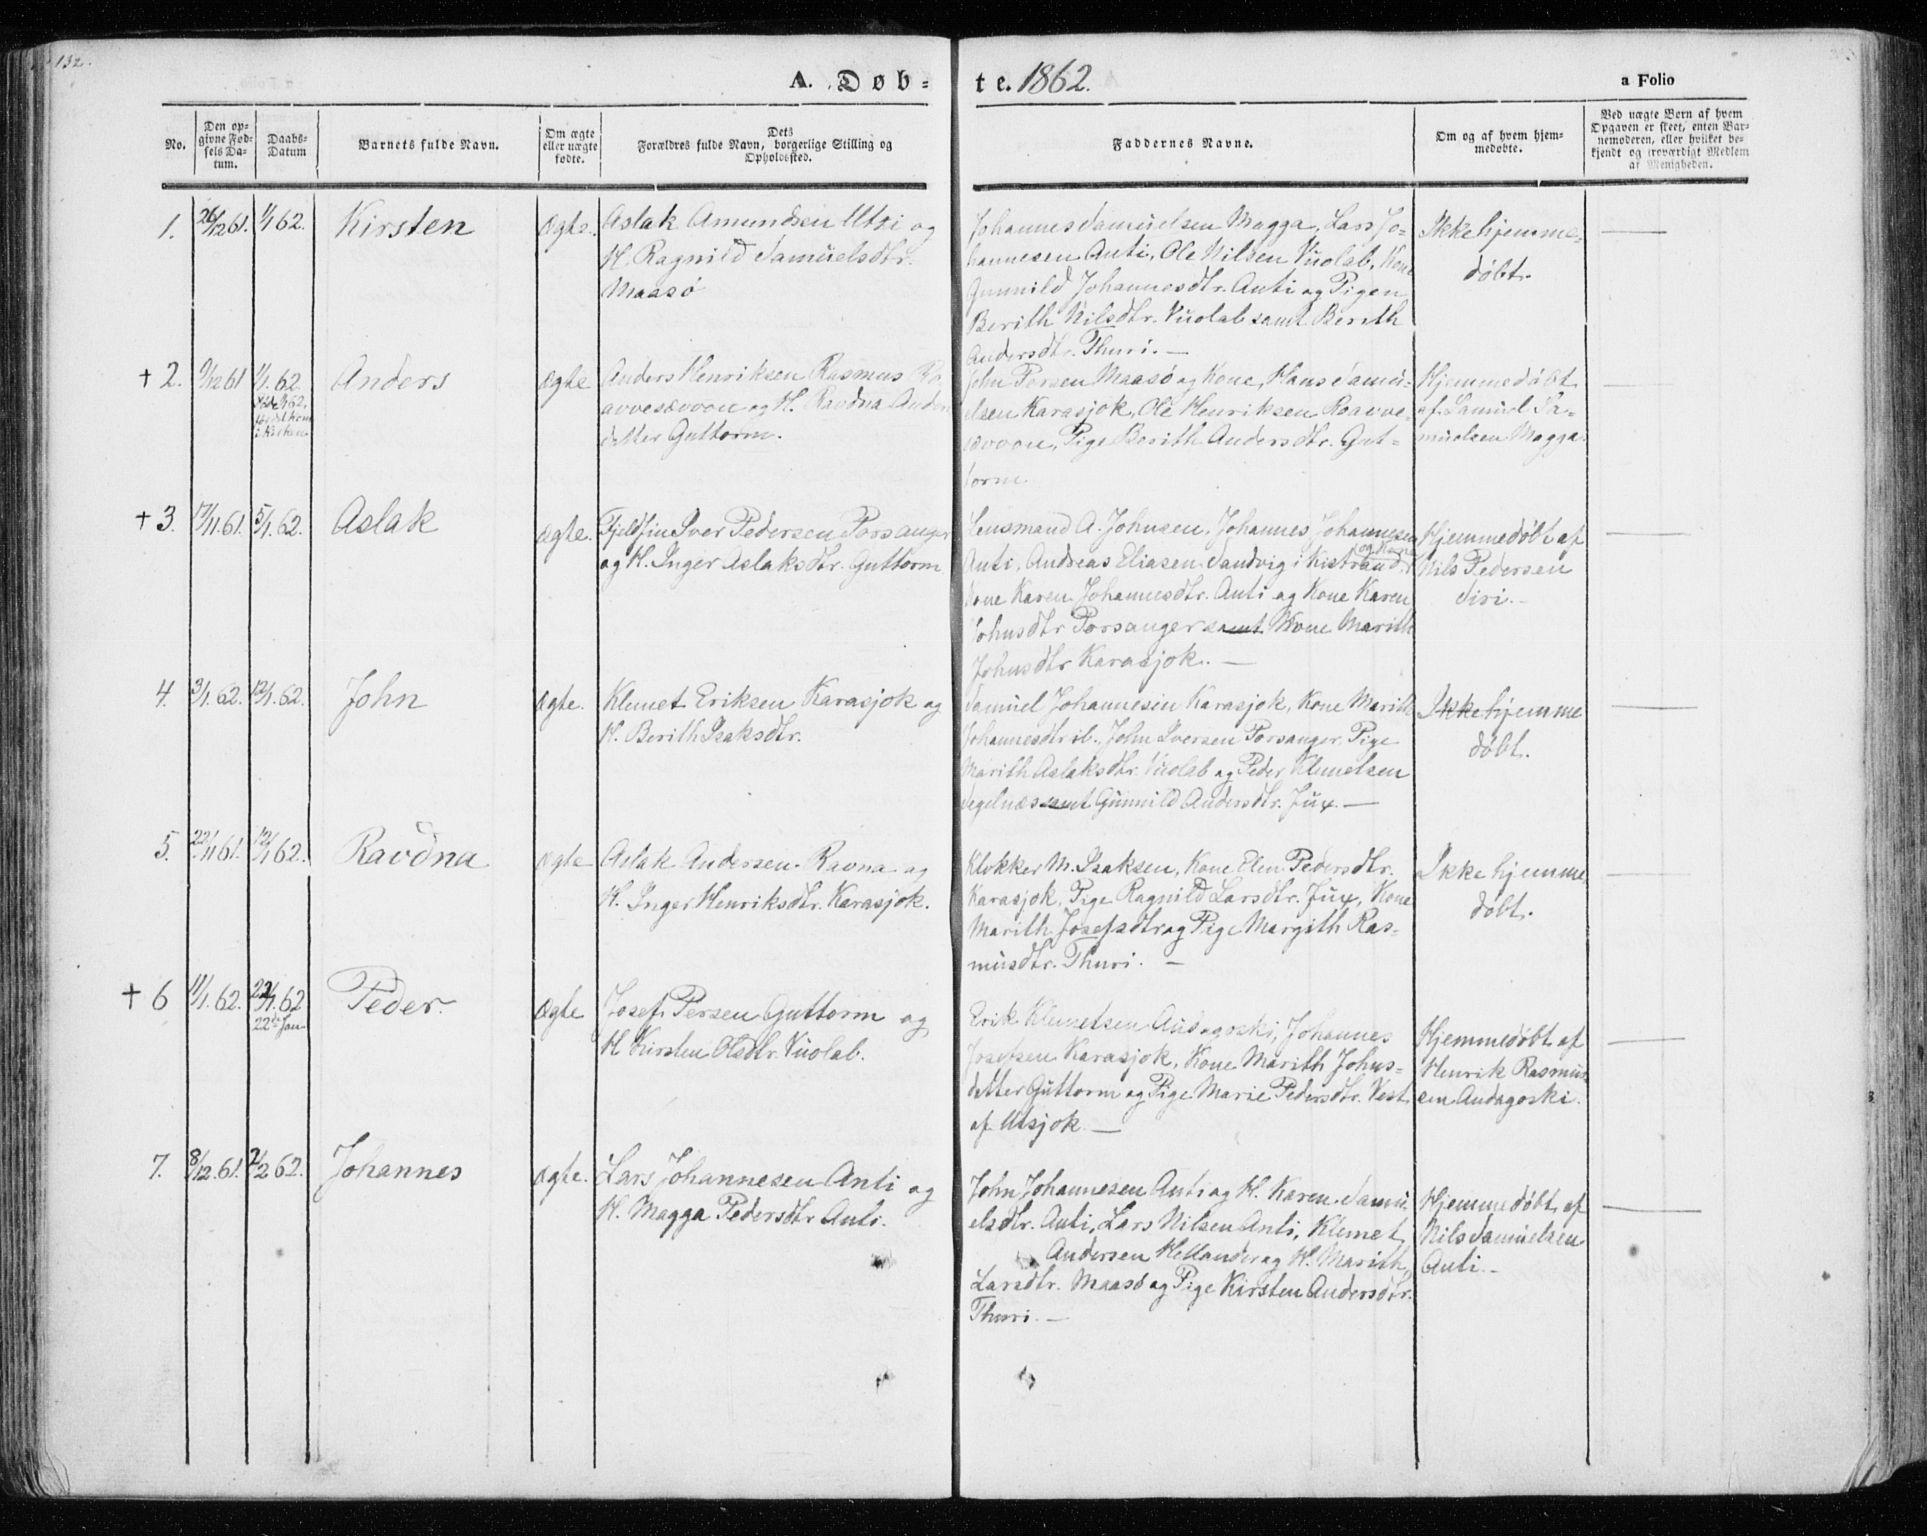 132.
A. Døb-
te. 1862.
a Folio
No.
Den op-
givne Fød-
sels Da-
tum.
Daabs-
Datum
Barnets fulde Navn.
Om ægte
eller uægte
fødte.
Dets
Forældres fulde Navn, borgerlige Stilling og
Opholdssted.
Faddernes Navne.
Om og af hvem hjem-
medøbte.
Ved uægte Børn af hvem
Opgaven er skeet, enten Bar-
nemoderen, eller hvilket be-
kjendt og troværdigt Medlem
af Menigheden.
1.
26/12 61.
1/1 62.
Kirsten
Ægte.
Aslak Amundsen Utzi og
H. Ragnild Samuelsdtr.
Maasø
Johannes Samuelsen Magga, Lars Jo-
hannesen Anti, Ole Nilsen Vuolab, Kone
Gunnild Johannesdtr. Anti og Pigen
Berith Nilsdtr. Vuolab samt Berith
Andersdtr. Thuri. —
Ikke hjemme-
døbt.
† 2.
9/12 61
1/1. 62.
Anders
Ægte
Anders Henriksen Rasmus Ro
avvesavvon og H. Ravdna Anders
datter Guttorm.
John Persen Maasø og Kone, Hans Samu-
elsen Karasjok, Ole Henriksen Roavve-
savvon, Pige Berith Andersdtr. Gut-
torm
Hjemmedøbt
af Samuel Sa-
muelsen Magga.
† 3.
17/11 61.
5/1. 62.
Aslak
Ægte.
Fjeldfin Iver Pedersen Porsanger
og H. Inger Aslaksdtr. Guttorm
Lensmand A. Johnsen, Johannes Johannesen
Anti, Andreas Eliasen Sandvig i Kistrand og Kone
Kone Karen Johannesdtr. Anti og Kone Karen
Johnsdtr Porsanger samt Kone Marith
Johnsdtr Karasjok. —
Hjemmedøbt af
Nils Pedersen
Siri. -
4.
3/1. 62.
12/1. 62.
John
Ægte.
Klemet Eriksen Karasjok og
H. Berith Isaksdtr.
Samuel Johannesen Karasjok, Kone Marith
Johannesdtr ib. John Iversen Porsanger, Pige
Marith Aslaksdtr. Vuolab og Peder Klemetsen
Segelnæs samt Gunnild Andersdtr. Jux. —
Ikke hjemme
døbt.
5.
22/11 61.
12/1 62.
Ravdna
Ægte
Aslak Andersen Ravna og
H. Inger Henriksdtr. Karasjok.
Klokker M. Isaksen, Kone Elen Pedersdtr.
Karasjok, Pige Ragnild Larsdtr. Jux, Kone
Marith Josefsdtr og Pige Margith Ras-
musdtr. Thuri. —
Ikke hjemme
døbt.
† 6
11/1. 62.
22/1. 62
22de Jan
Peder.
Ægte
Josef Persen Guttorm og
H Kirsten Olsdtr. Vuolab.
Erik Klemetsen Audagoski, Johannes
Josefsen Karasjok, Kone Marith Johns-
datter Guttorm og Pige Marie Pedersdtr. Vest
af Utsjok —
Hjemmedøbt af
Henrik Rasmus-
sen Audagoski.
7.
8/12. 61.
2/2 62.
Johannes
Ægte.
Lars Johannesen Anti og
H. Magga Pedersdtr Anti.
John Johannesen Anti og H. Karen Samu-
elsdtr. Anti, Lars Nilsen Anti, Klemet
Andersen Hellander og H. Marith
Larsdtr. Maasø og Pige Kirsten Andersdtr.
Thuri. —
Hjemmedøbt af
Nils Samuelsen
Anti. -